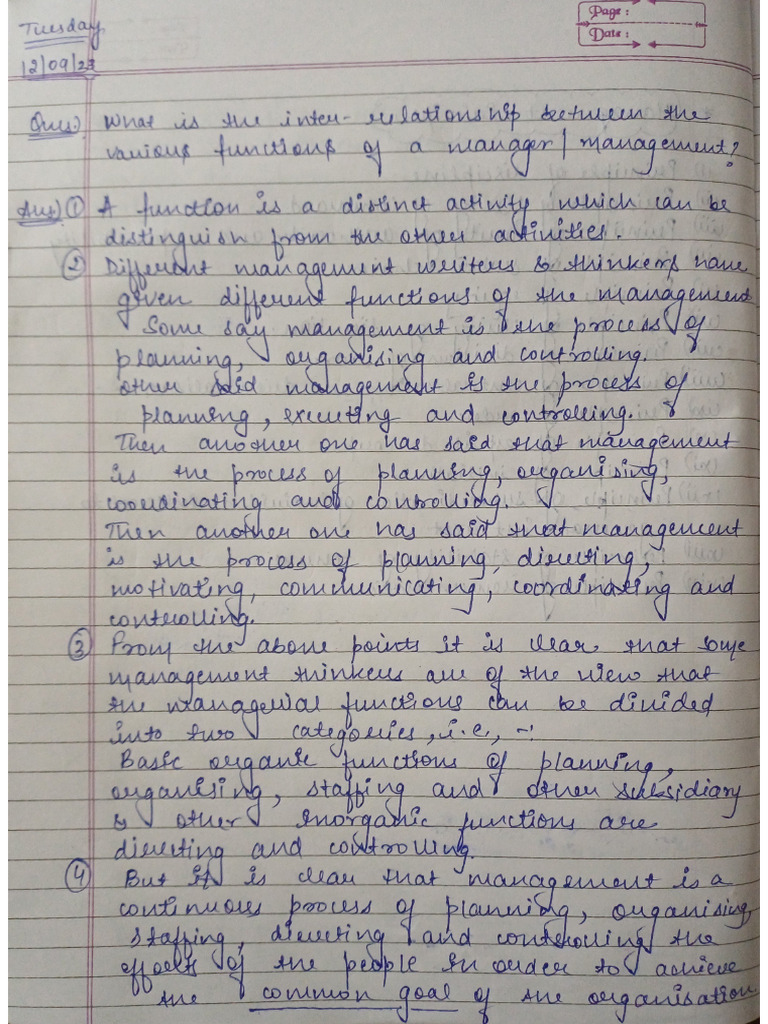 Tuesday
12/09/23
Page :
Date :
Ques) What is the inter-relationship between the
various functions of a manager/management?
Ans) ① A function is a distinct activity which can be
distinguish from the other activities.
② Different management writers & thinkers have
given different functions of the management
Some say management is the process of
planning, organising and controlling.
other said management is the process of
planning, executing and controlling.
Then another one has said that management
is the process of planning, organising,
coordinating and controlling.
Then another one has said that management
is the process of planning, directing,
motivating, communicating, coordinating and
controlling.
③ From the above points it is clear that some
management thinkers are of the view that
the managerial functions can be divided
into two categories, i.e., -:
Basic organic functions of planning,
organising, staffing and other subsidiary
& other Inorganic functions are
directing and controlling.
④ But it is clear that management is a
continuous process of planning, organising,
staffing, directing and controlling the
efforts of the people in order to achieve
the common goal of the organisation.